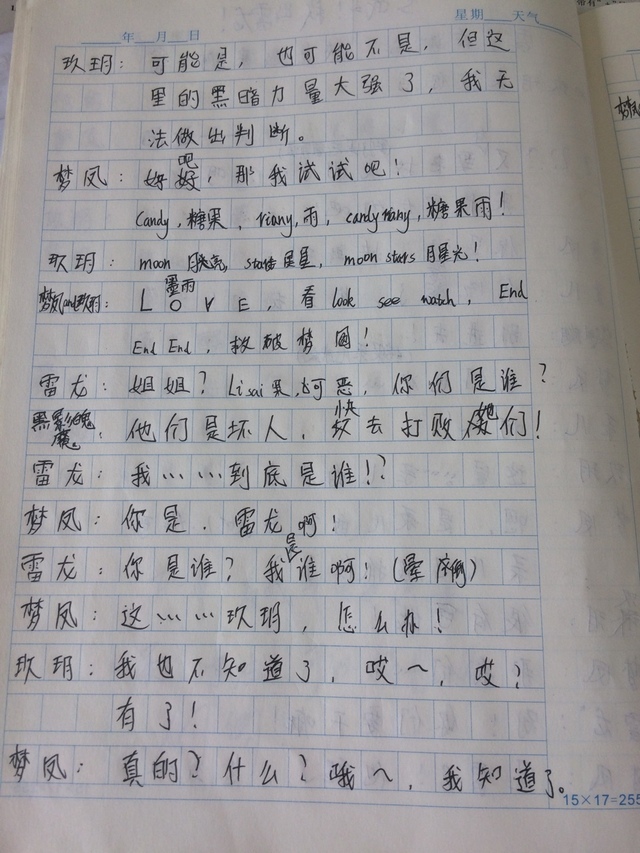 年 月 日 星期 天气
玖玥：可能是，也可能不是，但这
里的黑暗力量大强了，我无
法做出判断。
梦凤：好吧，那我试试吧！
Candy，糖果，riany，雨，candyriany，糖果雨！
玖玥：moon 月亮，stars 星星，moon stars 月星光！
梦凤and玖玥：L O V E，看 look see watch，End
End End，拯救梦国！
雷龙：姐姐？Lisai 果，可恶，你们是谁？
黑影魄魔：他们是坏人，快去打败她们！
雷龙：我……到底是谁！？
梦凤：你是，雷龙啊！
雷龙：你是谁？我是谁啊！（晕倒）
梦凤：这……玖玥，怎么办！
玖玥：我也不知道了，哎～，哎？
有了！
梦凤：真的？什么？哦～，我知道了。
15×17=255